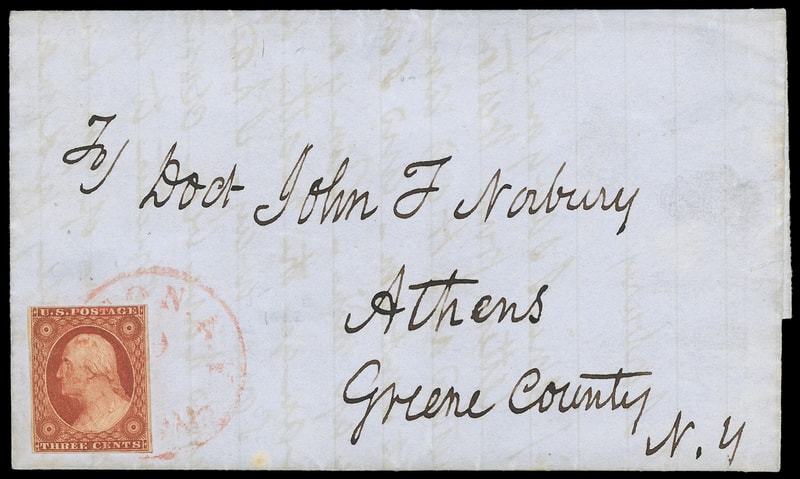 To/
Doct John F Norbury
Athens
Greene County
N.Y
U.S. POSTAGE
THREE CENTS